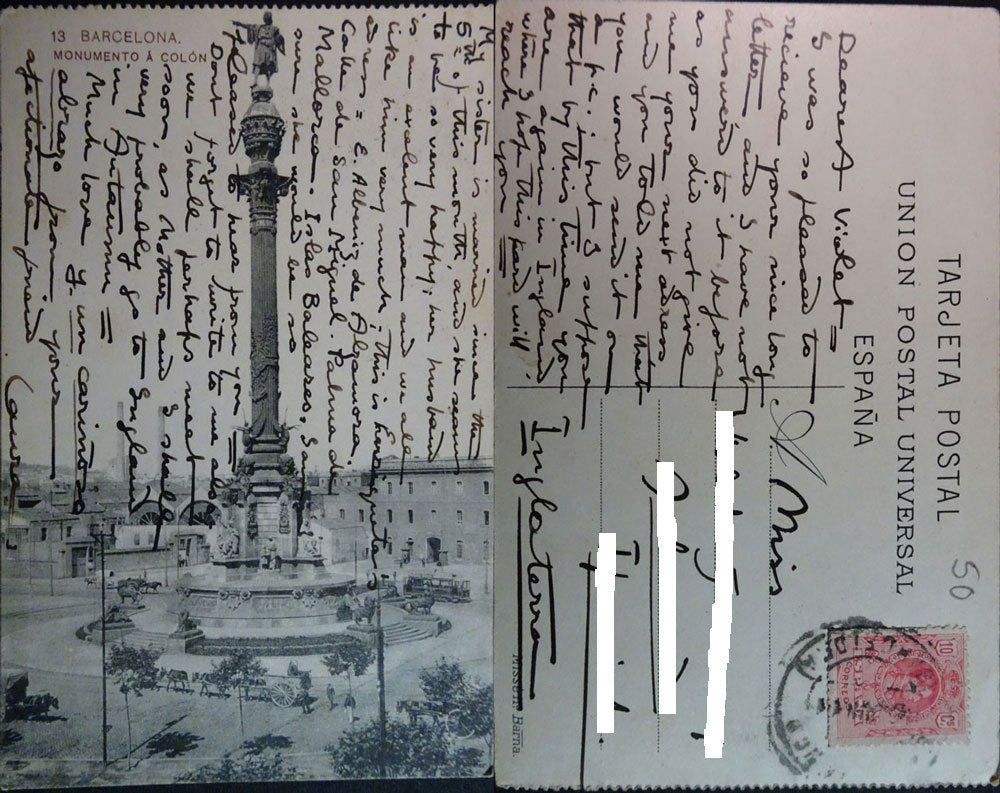 13 BARCELONA.
MONUMENTO Á COLÓN
My sister is maried since the
5th of this month, and she seems
to be so very happy; her husband
is an exelent man and we all
like him very much; this is
adress = E. Albéniz de
Calle de San Miguel. Palma de
Mallorca. Islas Baleares,
sure she would be so
pleased to hear from you
Dont forget to write to me also
we shall perhaps meat
soon, as Mother and I shall
very probably go to England
in Autaumn =
Much love y un cariñoso
abrazo from your
afectionate friend
Laura
TARJETA POSTAL
UNION POSTAL UNIVERSAL
ESPAÑA
50
Dearest Violet =
I was so pleased to
recieve your nice long
letter and I have not
answerd to it before
as you did not give
me your next adress
and you told me that
you would send it on
a p.c.; but I suppose
that by this time you
are again in England
where I hope this card will
reach you =
Miss
Inglaterra
Missé Hs Barna.